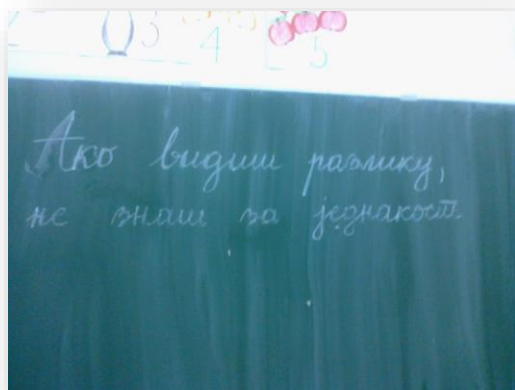 3 4 5
Ако видиш разлику,
не знаш за једнакост